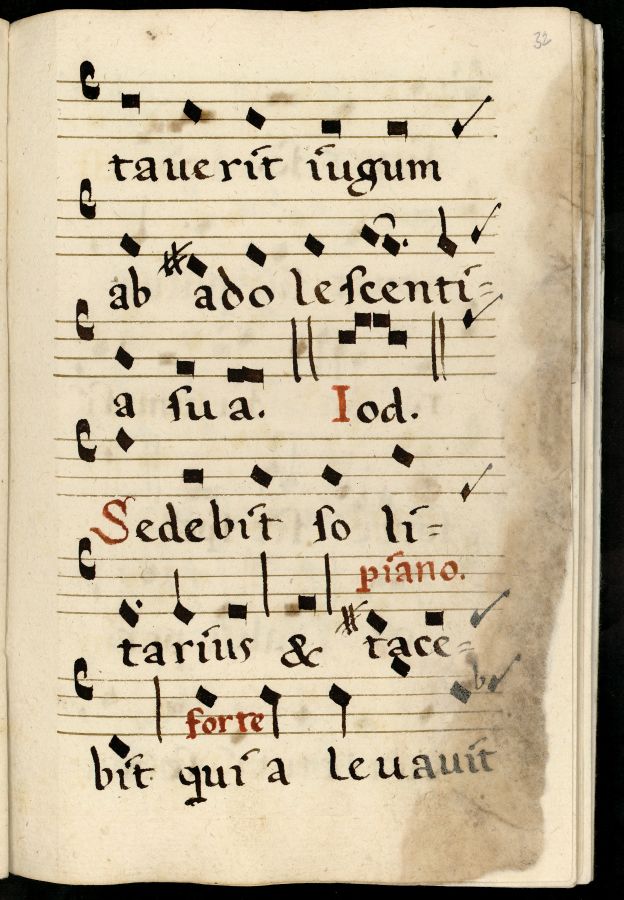 32
tauerit iugum
ab adolescenti=
a sua. Iod.
Sedebit so li=
piano.
tarius & tace=
forte
bit qui a leuauit